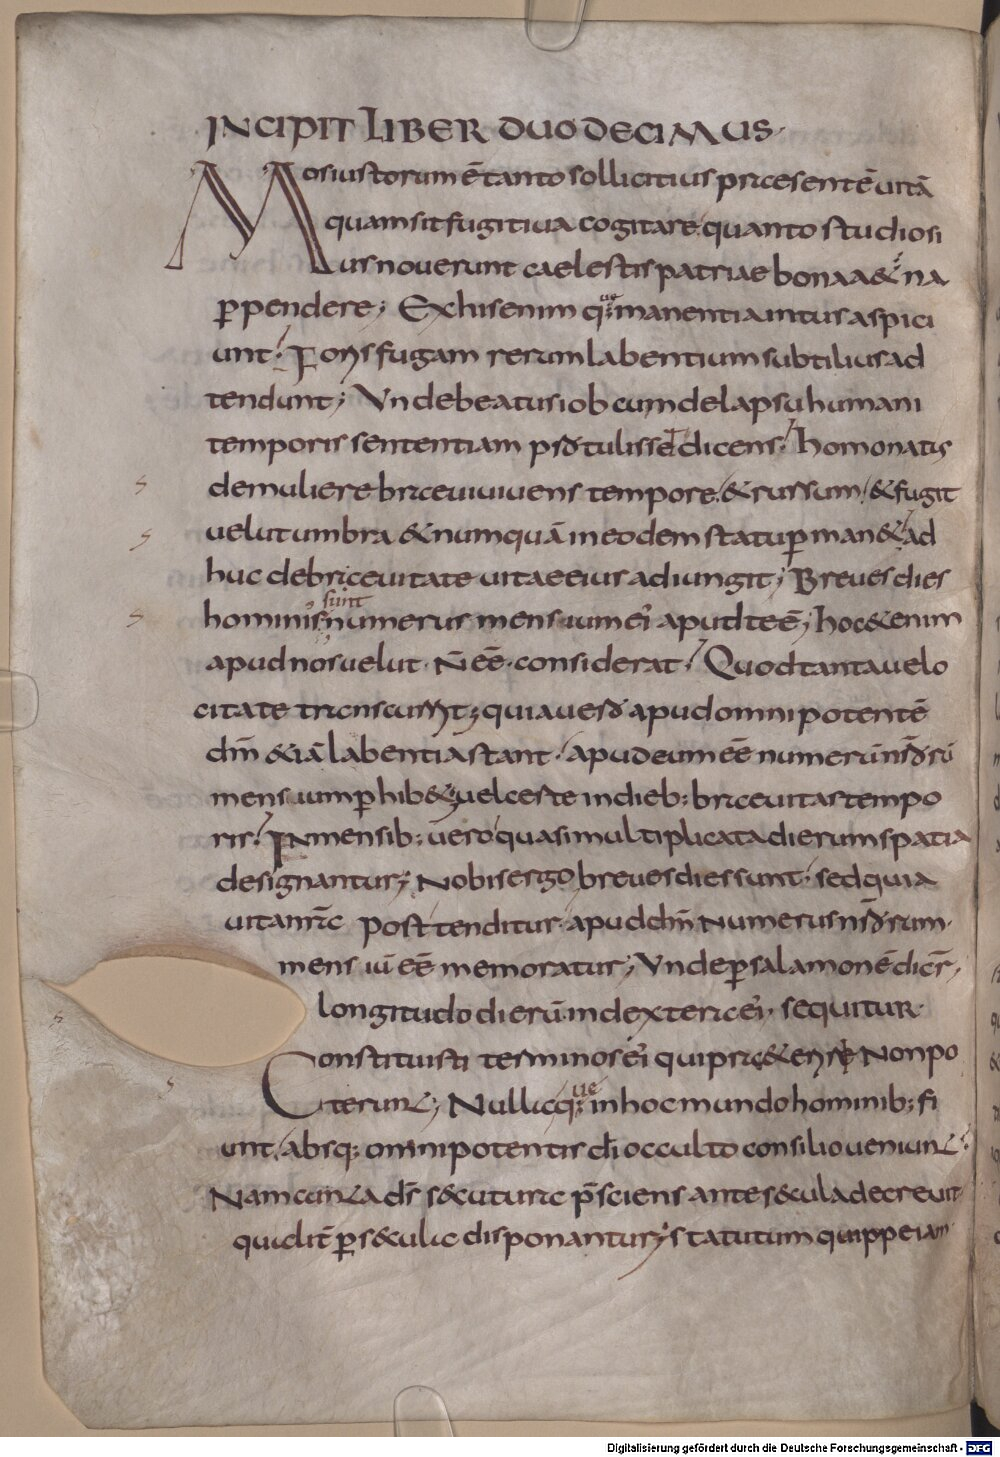 INCIPIT LIBER DUODECIMUS·
Mos iustorum ē tanto sollicitius praesentē uitā
quam sit fugitiua cogitare· quanto studiosi
us nouerunt caelestis patriae bona a&́na
ꝑpendere; Ex his enim q; manentia intus aspici
unt· Pons fugam rerum labentium subtilius ad
tendunt; Unde beatus iob cum de lapsu humani
temporis sententiam ꝓtulisse dicens· homo natus
de muliere breui uiuens tempore· & rursum· & fugit
uelut umbra & numquā in eodem statu ꝑman&· ad
huc de breuitate uitae eius adiungit; Breues dies
hominis sunt numerus mensium ei' apud te ē; hoc & enim
apud nos uelut· N̄ eē· considerat· Quod tanta uelo
citate transcurrit; quia uero apud omnipotentē
dm̄ & iā labentia stant· apud eum eē numerū nr̄orū
mensium ꝑhib&; uel certe in dieb; breuitas tempo
ris· In mensib; uero quasi multiplicata dierum spatia
designantur; Nobis ergo breues dies sunt· sed quia
uita nr̄a post tenditur· apud dm̄ numerus nr̄orum
mensiū eē memoratur; Unde ꝑ salamonē dicit̄;
longitudo dierū in dextera ei'· sequitur·
Constituisti terminos ei' qui praet&eriri non po
terunt; Nulla q; in hoc mundo hominib; fi
unt· absq; omnipotentis dī occulto consilio ueniunt·
Nam cuncta ds̄ s&cutura p̄sciens ante s&cula decreuit
qualit̄ ꝑ s&cula disponantur; Statutum quippe iam